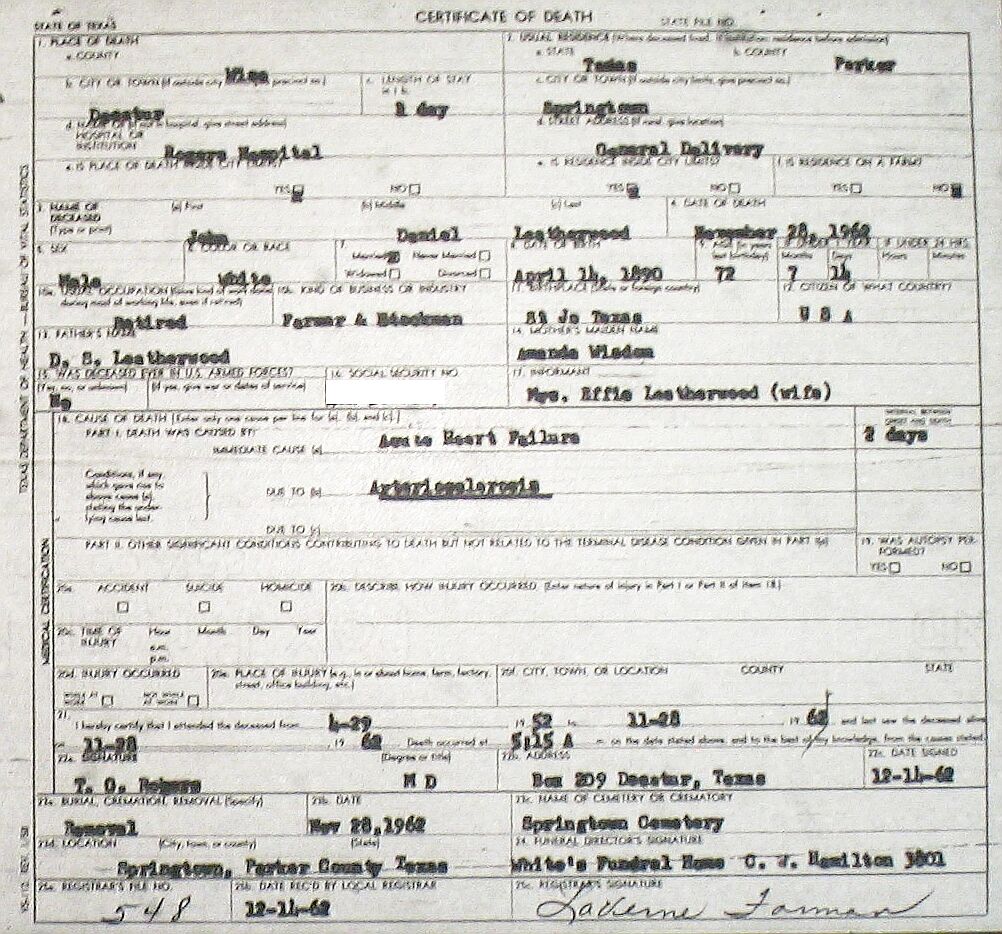 CERTIFICATE OF DEATH
STATE OF TEXAS
STATE FILE NO.
1. PLACE OF DEATH
a. COUNTY
Wise
2. USUAL RESIDENCE (Where deceased lived. If institution: residence before admission)
a. STATE
Texas
b. COUNTY
Parker
b. CITY OR TOWN (If outside city limits, give precinct no.)
Decatur
c. LENGTH OF STAY
in 1 b.
1 day
c. CITY OR TOWN (If outside city limits, give precinct no.)
Springtown
d. NAME OF (If not in hospital, give street address)
HOSPITAL OR
INSTITUTION
Rogers Hospital
d. STREET ADDRESS (If rural, give location)
General Delivery
e. IS PLACE OF DEATH INSIDE CITY LIMITS?
YES NO
e. IS RESIDENCE INSIDE CITY LIMITS?
YES NO
f. IS RESIDENCE ON A FARM?
YES NO
3. NAME OF
DECEASED
(Type or print)
(a) First
John
(b) Middle
Daniel
(c) Last
Leatherwood
4. DATE OF DEATH
November 28, 1962
5. SEX
Male
6. COLOR OR RACE
White
7.
Married Never Married
Widowed Divorced
8. DATE OF BIRTH
April 14, 1890
9. AGE (In years
last birthday)
72
IF UNDER 1 YEAR
Months Days
7 14
IF UNDER 24 HRS.
Hours Minutes
10a. USUAL OCCUPATION (Give kind of work done
during most of working life, even if retired)
Retired
10b. KIND OF BUSINESS OR INDUSTRY
Farmer & Stockman
11. BIRTHPLACE (State or foreign country)
St Jo Texas
12. CITIZEN OF WHAT COUNTRY?
U S A
13. FATHER'S NAME
D. S. Leatherwood
14. MOTHER'S MAIDEN NAME
Amanda Wisdom
15. WAS DECEASED EVER IN U.S. ARMED FORCES?
(Yes, no, or unknown) (If yes, give war or dates of service)
No
16. SOCIAL SECURITY NO.
17. INFORMANT
Mrs. Effie Leatherwood (wife)
18. CAUSE OF DEATH [Enter only one cause per line for (a), (b), and (c).]
PART I. DEATH WAS CAUSED BY:
IMMEDIATE CAUSE (a)
Acute Heart Failure
INTERVAL BETWEEN
ONSET AND DEATH
2 days
Conditions, if any
which gave rise to
above cause (a),
stating the under-
lying cause last.
DUE TO (b)
Arteriosclerosis
DUE TO (c)
PART II. OTHER SIGNIFICANT CONDITIONS CONTRIBUTING TO DEATH BUT NOT RELATED TO THE TERMINAL DISEASE CONDITION GIVEN IN PART I(a)
19. WAS AUTOPSY PER-
FORMED?
YES NO
20a. ACCIDENT SUICIDE HOMICIDE
20b. DESCRIBE HOW INJURY OCCURRED. (Enter nature of injury in Part I or Part II of Item 18.)
20c. TIME OF
INJURY
Hour Month Day Year
a.m.
p.m.
20d. INJURY OCCURRED
WHILE AT
WORK
NOT WHILE
AT WORK
20e. PLACE OF INJURY (e.g., in or about home, farm, factory,
street, office building, etc.)
20f. CITY, TOWN, OR LOCATION COUNTY STATE
21.
I hereby certify that I attended the deceased from 4-29 19 52 to 11-28 19 62 and last saw the deceased alive
on 11-28 19 62 Death occurred at 5:15 A m. on the date stated above, and to the best of my knowledge, from the causes stated.
22a. SIGNATURE (Degree or title)
T. O. Rogers M D
22b. ADDRESS
Box 209 Decatur, Texas
22c. DATE SIGNED
12-14-62
23a. BURIAL, CREMATION, REMOVAL (Specify)
Removal
23b. DATE
Nov 28,1962
23c. NAME OF CEMETERY OR CREMATORY
Springtown Cemetery
23d. LOCATION (City, town, or county) (State)
Springtown, Parker County Texas
24. FUNERAL DIRECTOR'S SIGNATURE
White's Fundral Home C. J. Hamilton 3801
25a. REGISTRAR'S FILE NO.
548
25b. DATE REC'D BY LOCAL REGISTRAR
12-14-62
25c. REGISTRAR'S SIGNATURE
LaVerne Forman
TEXAS DEPARTMENT OF HEALTH — BUREAU OF VITAL STATISTICS
MEDICAL CERTIFICATION